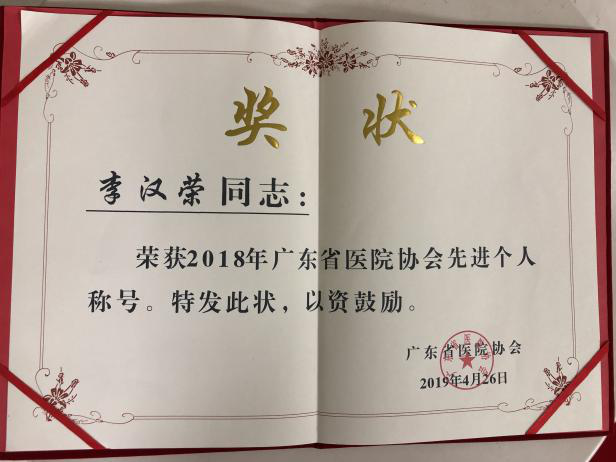 奖状
李汉荣同志：
荣获2018年广东省医院协会先进个人
称号。特发此状，以资鼓励。
广东省医院协会
2019年4月26日